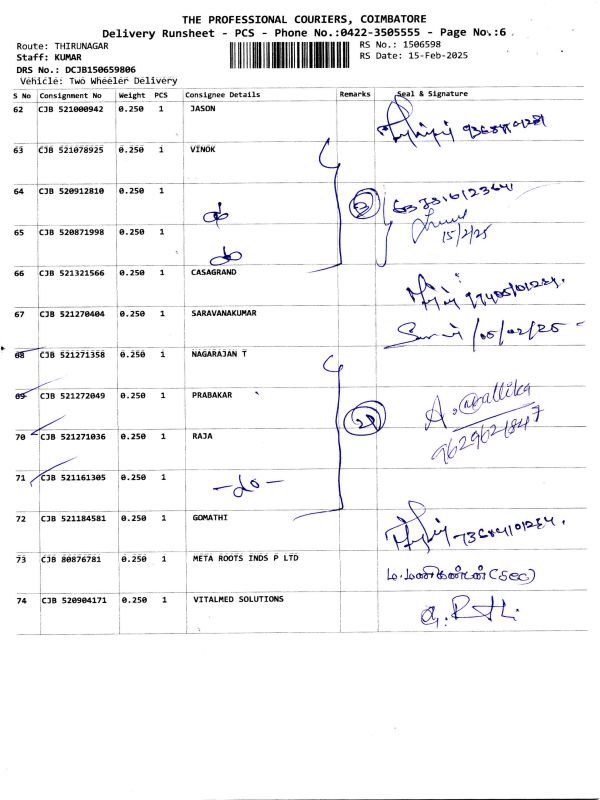 THE PROFESSIONAL COURIERS, COIMBATORE
Delivery Runsheet - PCS - Phone No.:0422-3505555 - Page No.:6
Route: THIRUNAGAR
RS No.: 1506598
Staff: KUMAR
RS Date: 15-Feb-2025
DRS No.: DCJB150659806
Vehicle: Two Wheeler Delivery
S No Consignment No Weight PCS Consignee Details Remarks Seal & Signature
62 CJB 521000942 0.250 1 JASON
63 CJB 521078925 0.250 1 VINOK
64 CJB 520912810 0.250 1
do
15/2/25
65 CJB 520871998 0.250 1
do
66 CJB 521321566 0.250 1 CASAGRAND
67 CJB 521270404 0.250 1 SARAVANAKUMAR
68 CJB 521271358 0.250 1 NAGARAJAN T
69 CJB 521272049 0.250 1 PRABAKAR
A. Mallika
9629621847
70 CJB 521271036 0.250 1 RAJA
71 CJB 521161305 0.250 1
-do-
72 CJB 521184581 0.250 1 GOMATHI
73 CJB 80876781 0.250 1 META ROOTS INDS P LTD ம.மணிகண்டன் (sec)
74 CJB 520904171 0.250 1 VITALMED SOLUTIONS